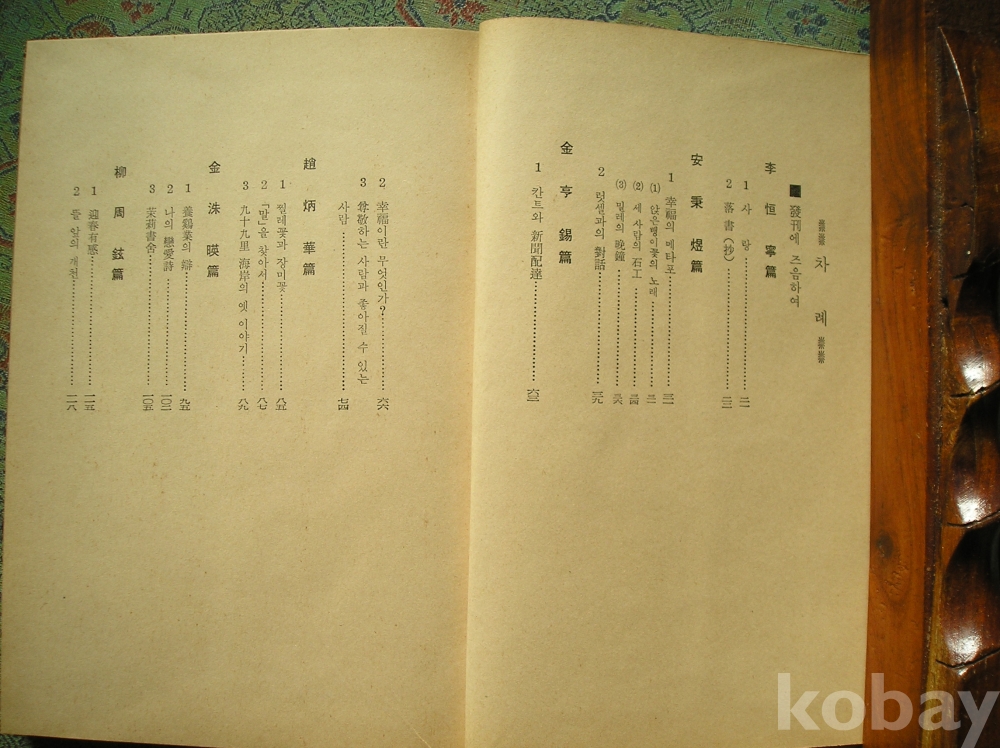 차례
■發刊에 즈음하여
李恒寧篇
1 사랑
2 落書(抄)
安秉煜篇
1 幸福의 메타포
(1) 앉은뱅이꽃의 노래
(2) 세 사람의 石工
(3) 밀레의 晩鐘
2 럿셀과의 對話
金亨錫篇
1 칸트와 新聞配達 六二
2 幸福이란 무엇인가? 六六
3 尊敬하는 사람과 좋아질 수 있는
사람 七四
趙炳華篇
1 찔레꽃과 장미꽃 八五
2 「말」을 찾아서 八七
3 九十九里 海岸의 옛 이야기 八九
金洙暎篇
1 養鷄業의 辯 九五
2 나의 戀愛詩 一〇二
3 茉莉書舍 一〇五
柳周鉉篇
1 迎春有感 一一五
2 들 앞의 개천 一一八
kobay